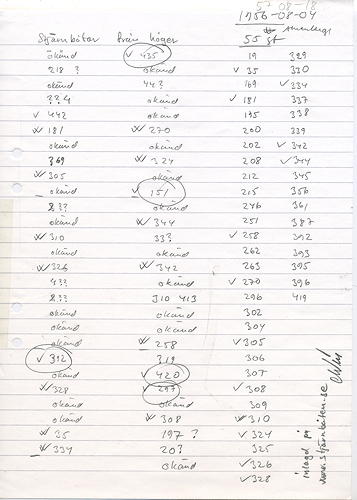 57 08-18
1956-08-04
Stjärnbåtar från höger 55 st
okänd ✓ 435 19 329
218 ? okänd ✓ 35 330
okänd 44? 169 ✓ 334
??4 okänd ✓ 181 337
✓ 442 okänd 195 338
W 181 W 270 200 339
okänd okänd 202 ✓ 342
369 W 324 208 ✓ 344
W 305 okänd 212 345
okänd ✓ 151 215 356
2?? okänd 246 361
okänd W 344 251 387
W 310 33? ✓ 258 392
okänd okänd 262 393
W 326 W 342 263 395
4?? okänd ✓ 270 396
2?? 310 413 296 419
okänd okänd 302
okänd okänd 304
okänd W 258 ✓ 305
✓ 312 319 306
okänd ✓ 420 307
W 328 ✓ 297 ✓ 308
okänd okänd 309
okänd W 308 W 310
W 35 197 ? ✓ 324
W 334 20? 325
okänd ✓ 326
✓ 328
inlagd på
www.stjärnbåten.se